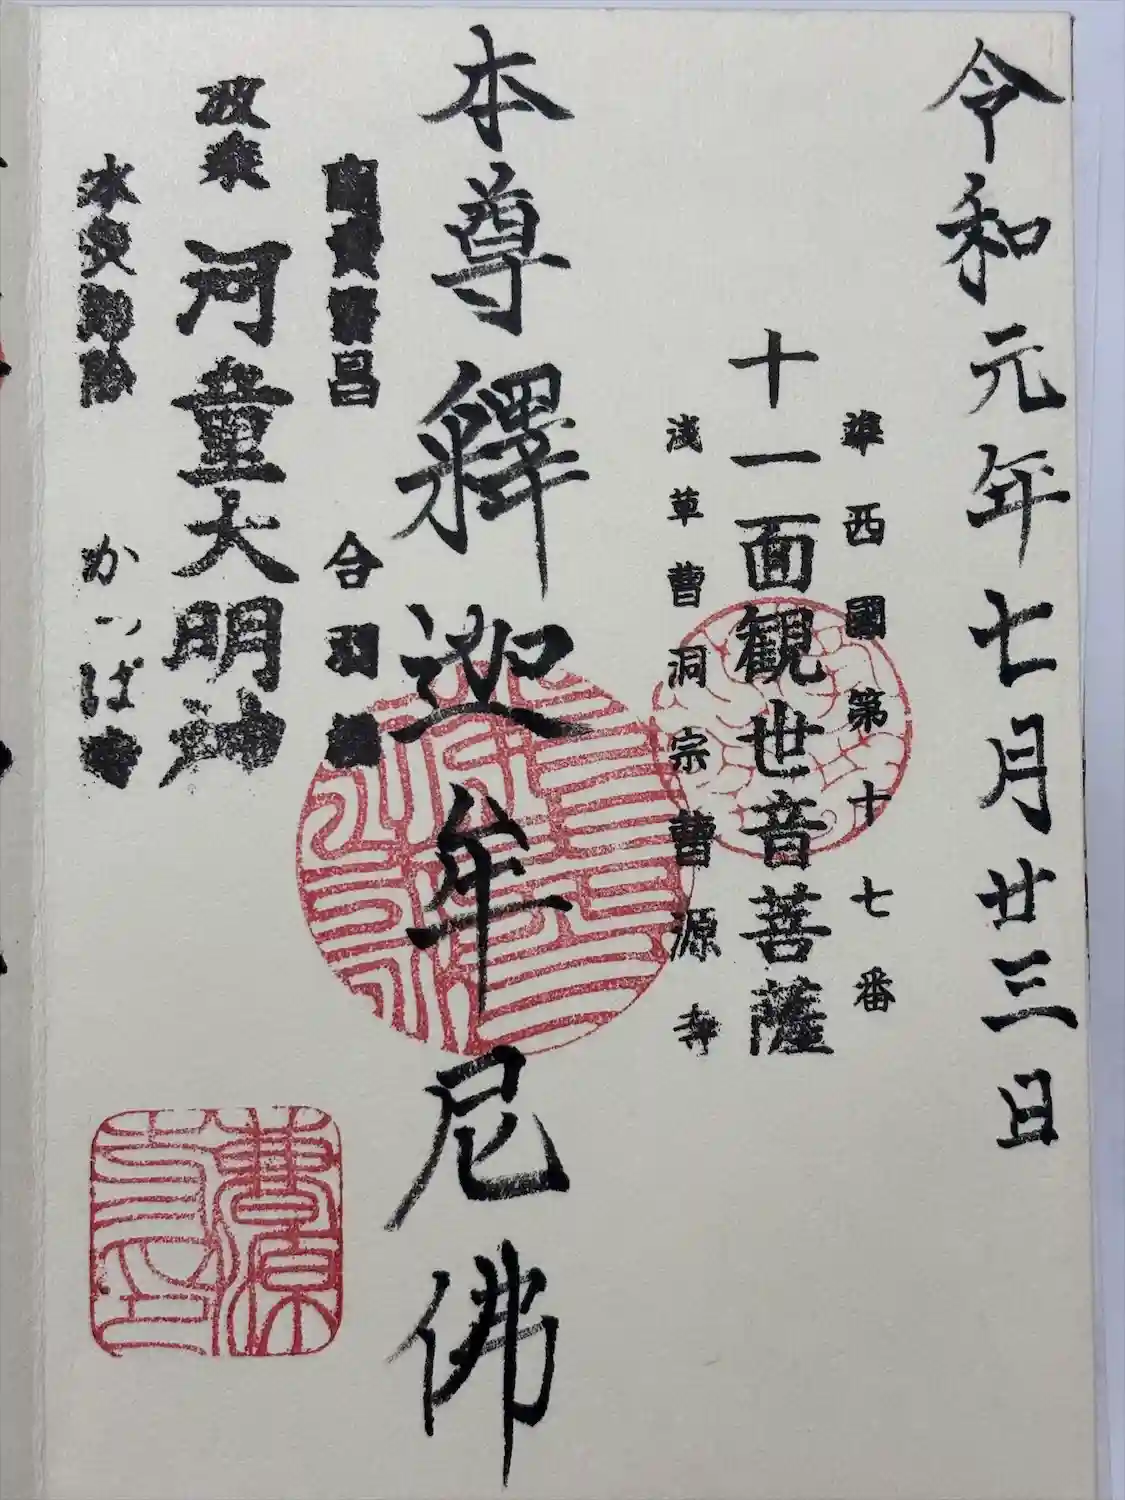 令和元年七月廿三日
準西國第十七番
十一面観世音菩薩
浅草曹洞宗曹源寺
本尊釋迦牟尼佛
昌 合羽
政来 河童大明神
本 かっぱ寺
曹源寺印